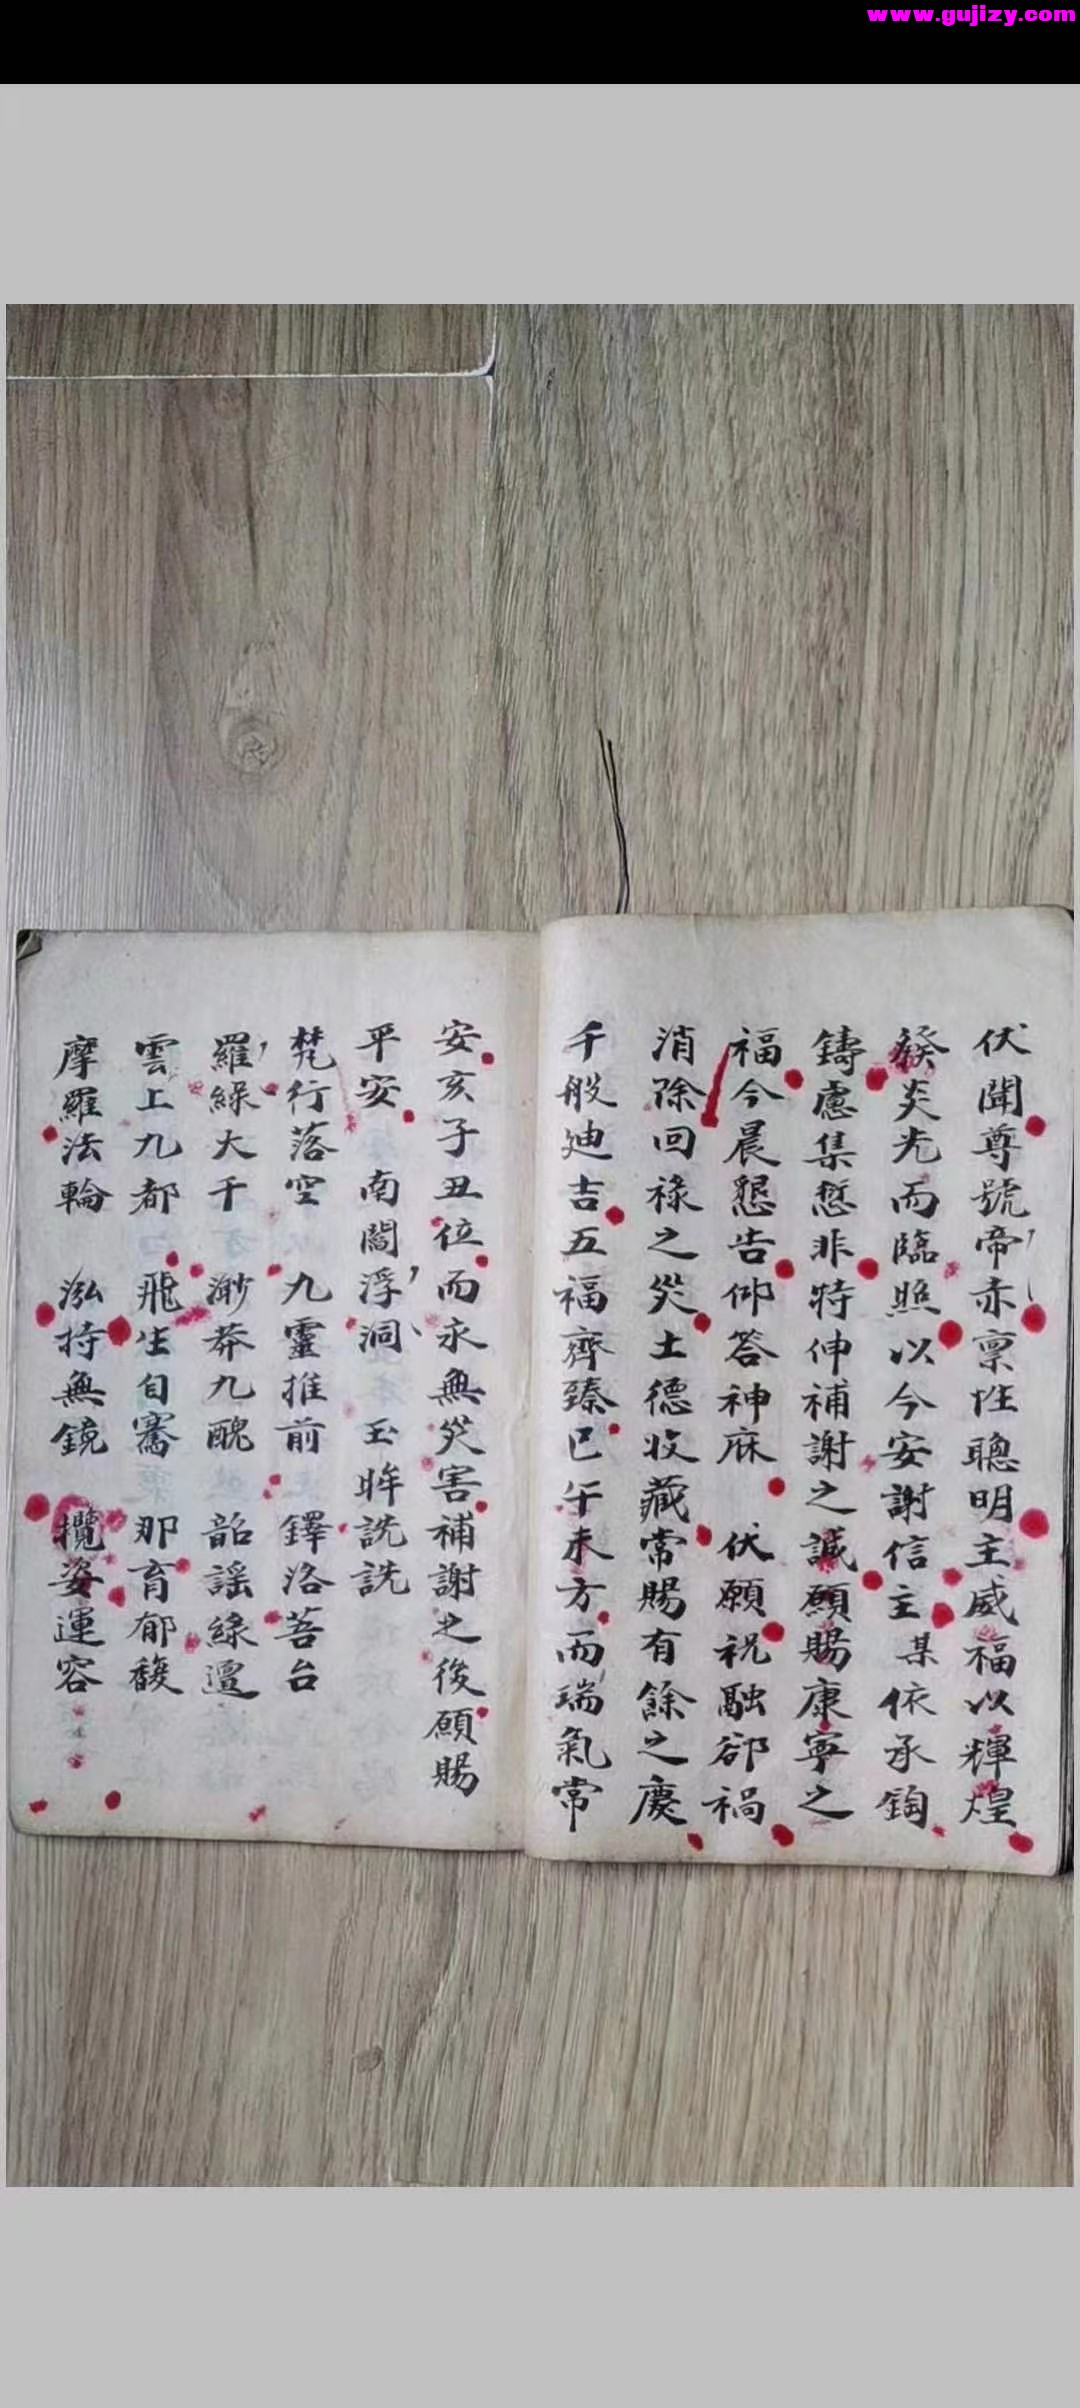 www.gujizy.com
伏聞尊號帝赤禀性聰明主威福以輝煌
發炎光而臨照以今安謝信主某依承鈞
鑄慮集愆非特伸補謝之誠願賜康寧之
福今晨懇告仰答神庥 伏願祝融郤禍
消除回祿之災土德收藏常賜有餘之慶
千般迪吉五福齊臻巳午未方而瑞氣常
安亥子丑位而永無災害補謝之後願賜
平安 南閻浮洞 玉眸詵詵
梵行落空 九靈推前 鐸洛菩台
羅綠大千 渺莽九醜 韶謡綠邅
雲上九都 飛生自騫 那育郁馥
摩羅法輪 泓持無鏡 攬姿運容